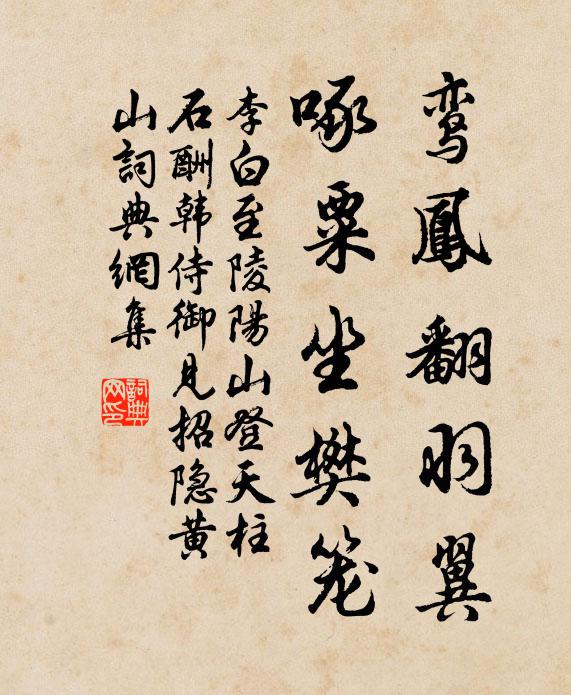 鸾鳳翻羽翼
啄粟坐樊笼
李白至陵陽山登天柱
石酬韩侍御見招隐黄
山詞典網集
詞典
网印